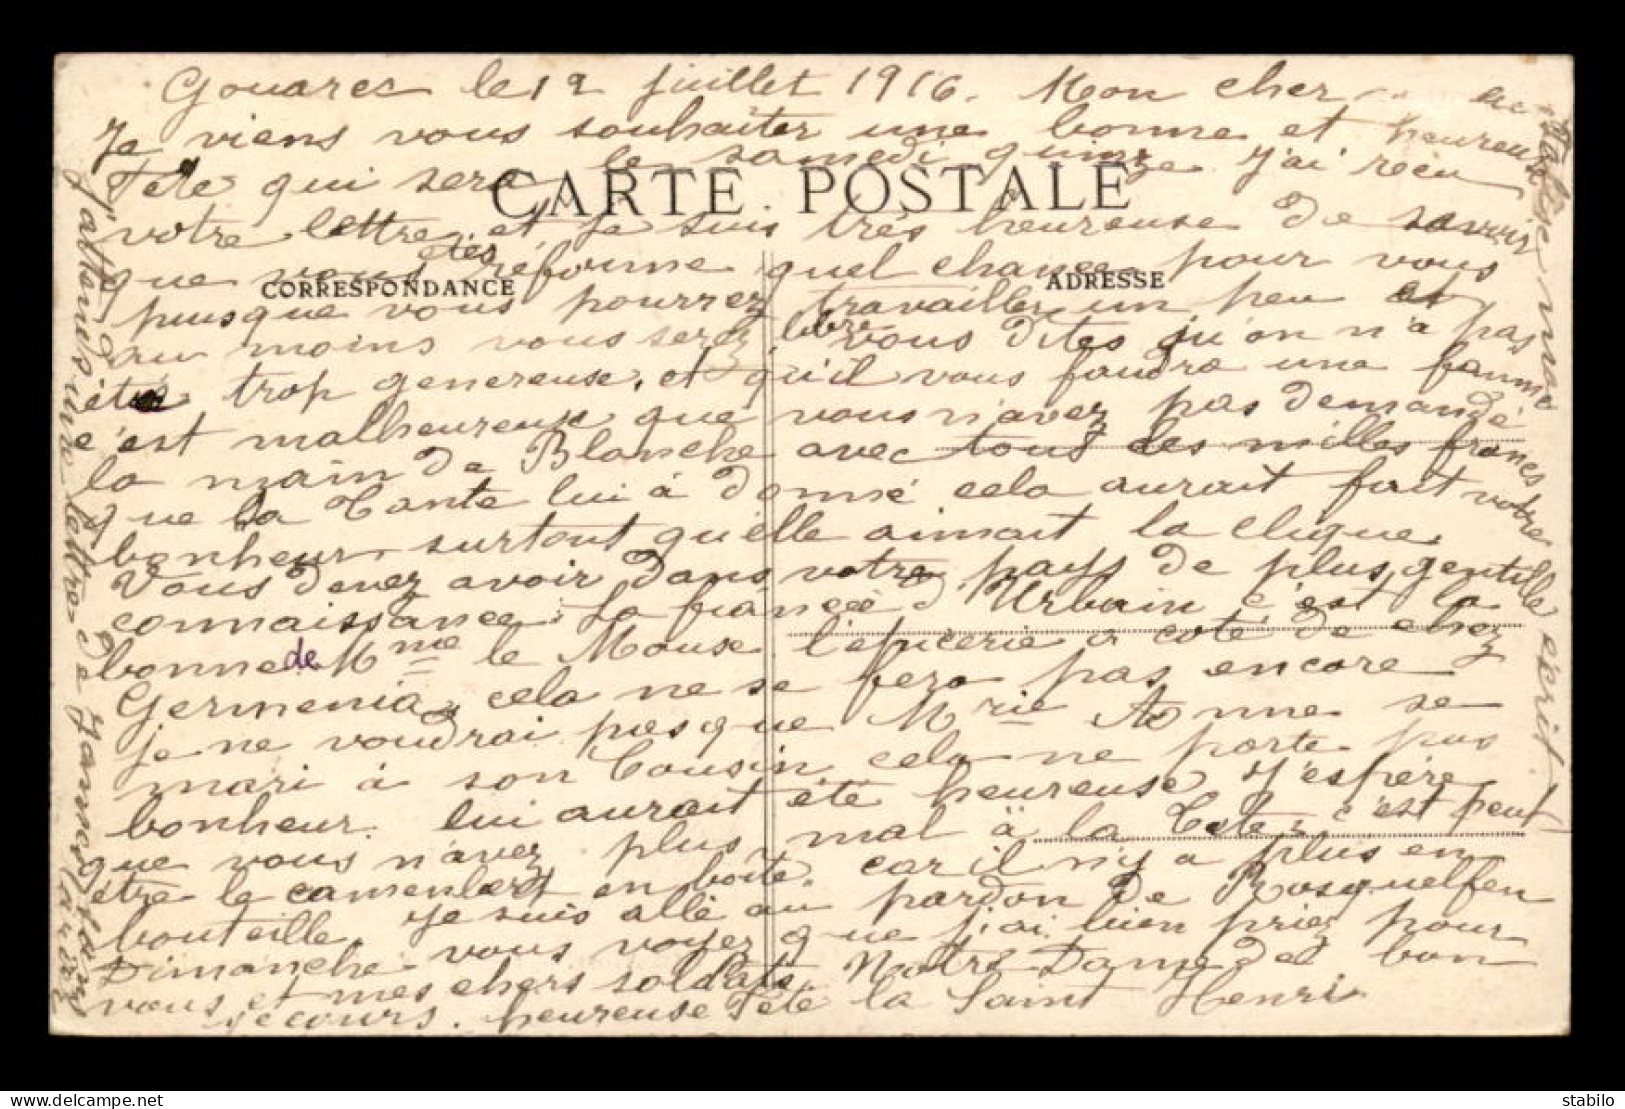 Gouarec le 12 juillet 1916. Mon cher
Je viens vous souhaiter une bonne et heureuse
Fête qui sera le samedi quinze j'ai reçu
CARTE POSTALE
votre lettre et je suis très heureuse de savoir
que vous êtes réformé quel chance pour vous
CORRESPONDANCE
ADRESSE
puisque vous pourrez travailler un peu et
au moins vous serez libre vous dites qu'on n'a pas
été trop genereuse. et qu'il vous faudra une famme
c'est malheureux que vous n'avez pas demandé
la main de Blanche avec tous des milles francs
que la Tante lui à donné cela aurait fait votre
bonheur surtout qu'elle aimait la clique
Vous devez avoir dans votre pays de plus gentille
connaissance. La fiancée d'Urbain c'est la
bonne de Mme le Mouse l'épicerie a coté de chez
Germenia, cela ne se fera pas encore
je ne voudrai pas que Mrie Anne se
mari à son Cousin cela ne porte pas
bonheur. lui aurait été heureuse J'espére
que vous n'avez plus mal à la Tete, c'est peut
être le camenbert en boite. car il n'y a plus en
bouteille. Je suis allé au pardon de Rosquelfen
Dimanche vous voyez que j'ai bien priez pour
vous et mes chers soldats. Notre Dame de bon
secours. heureuse Fête la Saint Henri
J'attends une lettre de
Valise mon
écrit
stabilo